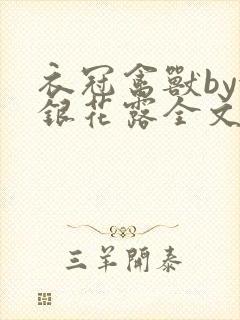 衣冠禽獸by
銀花露全文
三羊開泰